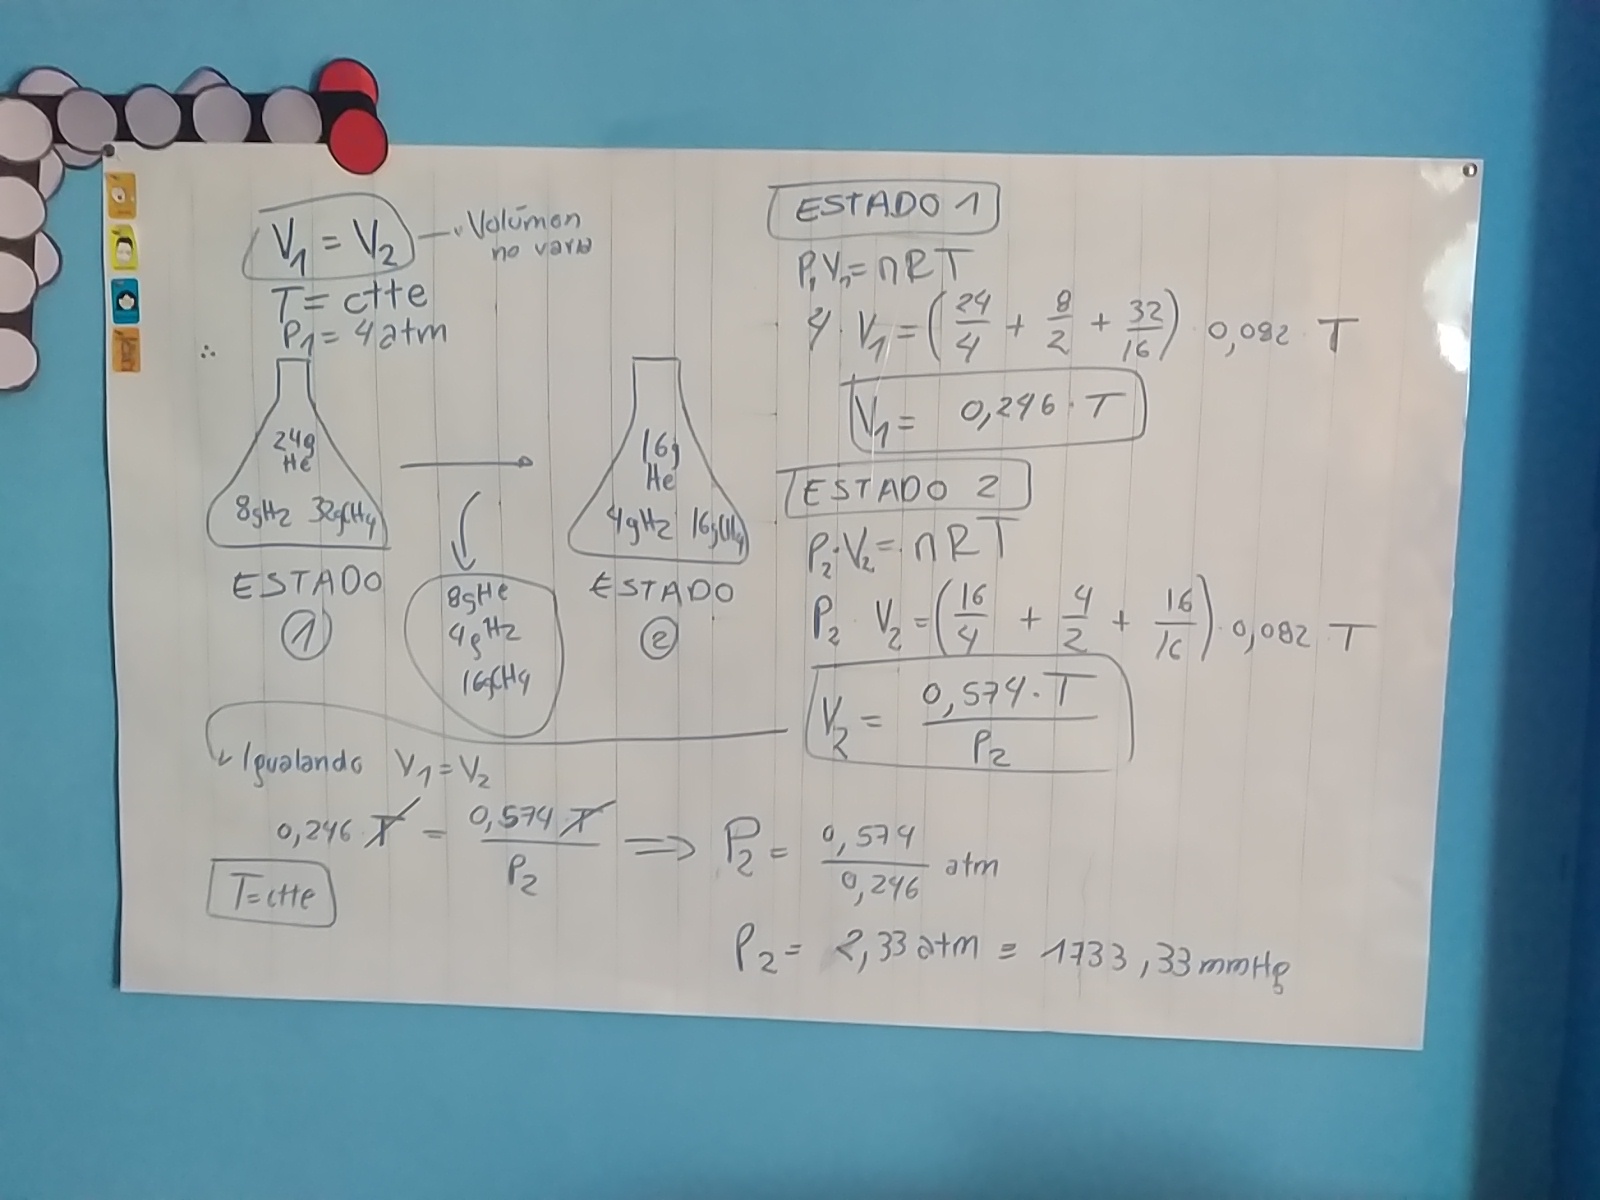 V₁ = V₂ → Volúmen
no varia
T = ctte
P₁ = 4 atm
∴
24g
He
8gH2 32gCH4
ESTADO
1
8gHe
4gH2
16gCH4
16g
He
4gH2 16gCH4
ESTADO
2
ESTADO 1
P₁ V₁ = n R T
4 · V₁ = (24/4 + 8/2 + 32/16) · 0,082 T
V₁ = 0,246 · T
ESTADO 2
P₂ · V₂ = n R T
P₂ · V₂ = (16/4 + 4/2 + 16/16) · 0,082 · T
V₂ = 0,574 · T / P₂
Igualando V₁ = V₂
0,246 T = 0,574 T / P₂ ⇒ P₂ = 0,574 / 0,246 atm
T = ctte
P₂ = 2,33 atm ≡ 1733,33 mmHg